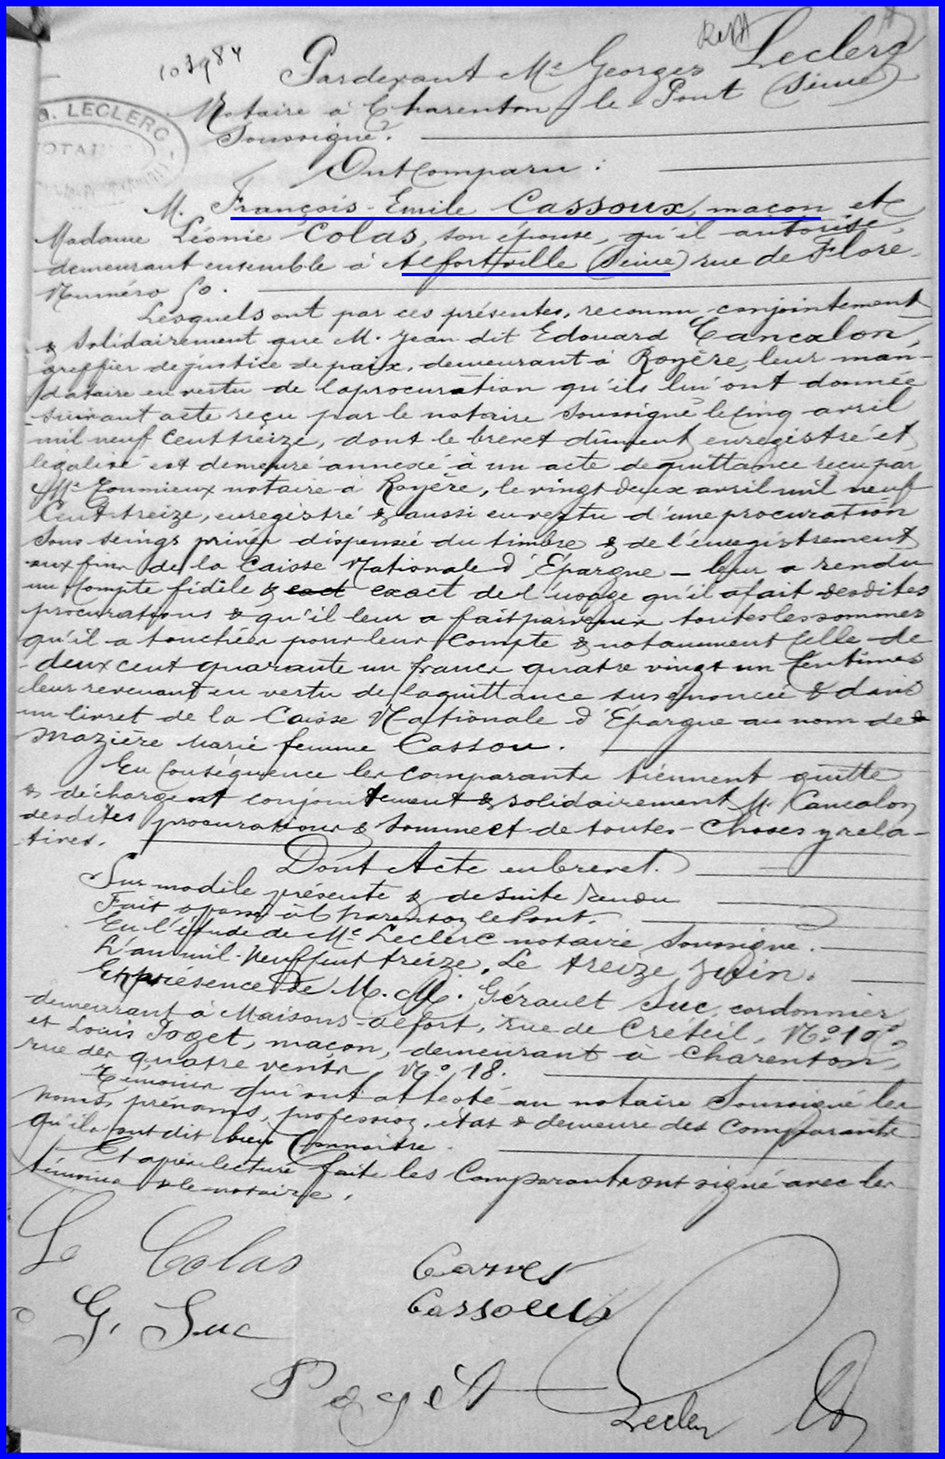 Pardevant Me Georges Leclerc
Notaire à Charenton le Pont (Seine)
Soussigné.
G. LECLERC
Ont Comparu :
M. François-Emile Cassoux, maçon et
Madame Léonie Colas, son épouse, qu'il autorise,
demeurant ensemble à Alfortville (Seine) rue de Flore
Numéro
Lesquels ont par ces présentes, reconnu conjointement
& solidairement que M. Jean dit Edouard Cancalon,
greffier de justice de paix, demeurant à Royère, leur man-
dataire en vertu de la procuration qu'ils lui ont donnée
suivant acte reçu par le notaire soussigné le cinq avril
mil neuf cent treize, dont le brevet dûment enregistré et
légalisé est demeuré annexé à un acte de quittance reçu par
Me Toumieux notaire à Royère, le vingt deux avril mil neuf
cent treize, enregistré & aussi en vertu d'une procuration
sous seings privés dispensée du timbre & de l'enregistrement
aux fins de la Caisse Nationale d'Épargne – leur a rendu
un compte fidèle & exact de l'usage qu'il a fait desdites
procurations & qu'il leur a fait parvenir toutes les sommes
qu'il a touchées pour leur compte & notamment celle de
deux cent quarante un francs quatre vingt un centimes
leur revenant en vertu de la quittance susénoncée & dans
un livret de la Caisse Nationale d'Épargne au nom de
Mazière Marie femme Cassou.
En conséquence les comparants tiennent quitte
& déchargent conjointement & solidairement M Cancalon
desdites procurations & sommes et de toutes – choses y rela-
tives.
Dont Acte en brevet.
Sur modèle présenté & de suite rendu
Fait & passé à Charenton le Pont.
En l'étude de Me Leclerc notaire soussigné.
L'an mil neuf cent treize, Le treize Juin.
En présence de M. M. Gérault Suc, cordonnier
demeurant à Maisons-Alfort, rue de Créteil, No
et Louis Poget, maçon, demeurant à Charenton,
rue des quatre vents, No 18.
Témoins qui ont attesté au notaire soussigné les
noms, prénoms, profession, état & demeure des comparants
qu'ils ont dit bien connaître.
Et après lecture faite les Comparants ont signé avec les
témoins & le notaire.
Le Colas
Cassoux
G. Suc
Pogét
Leclerc